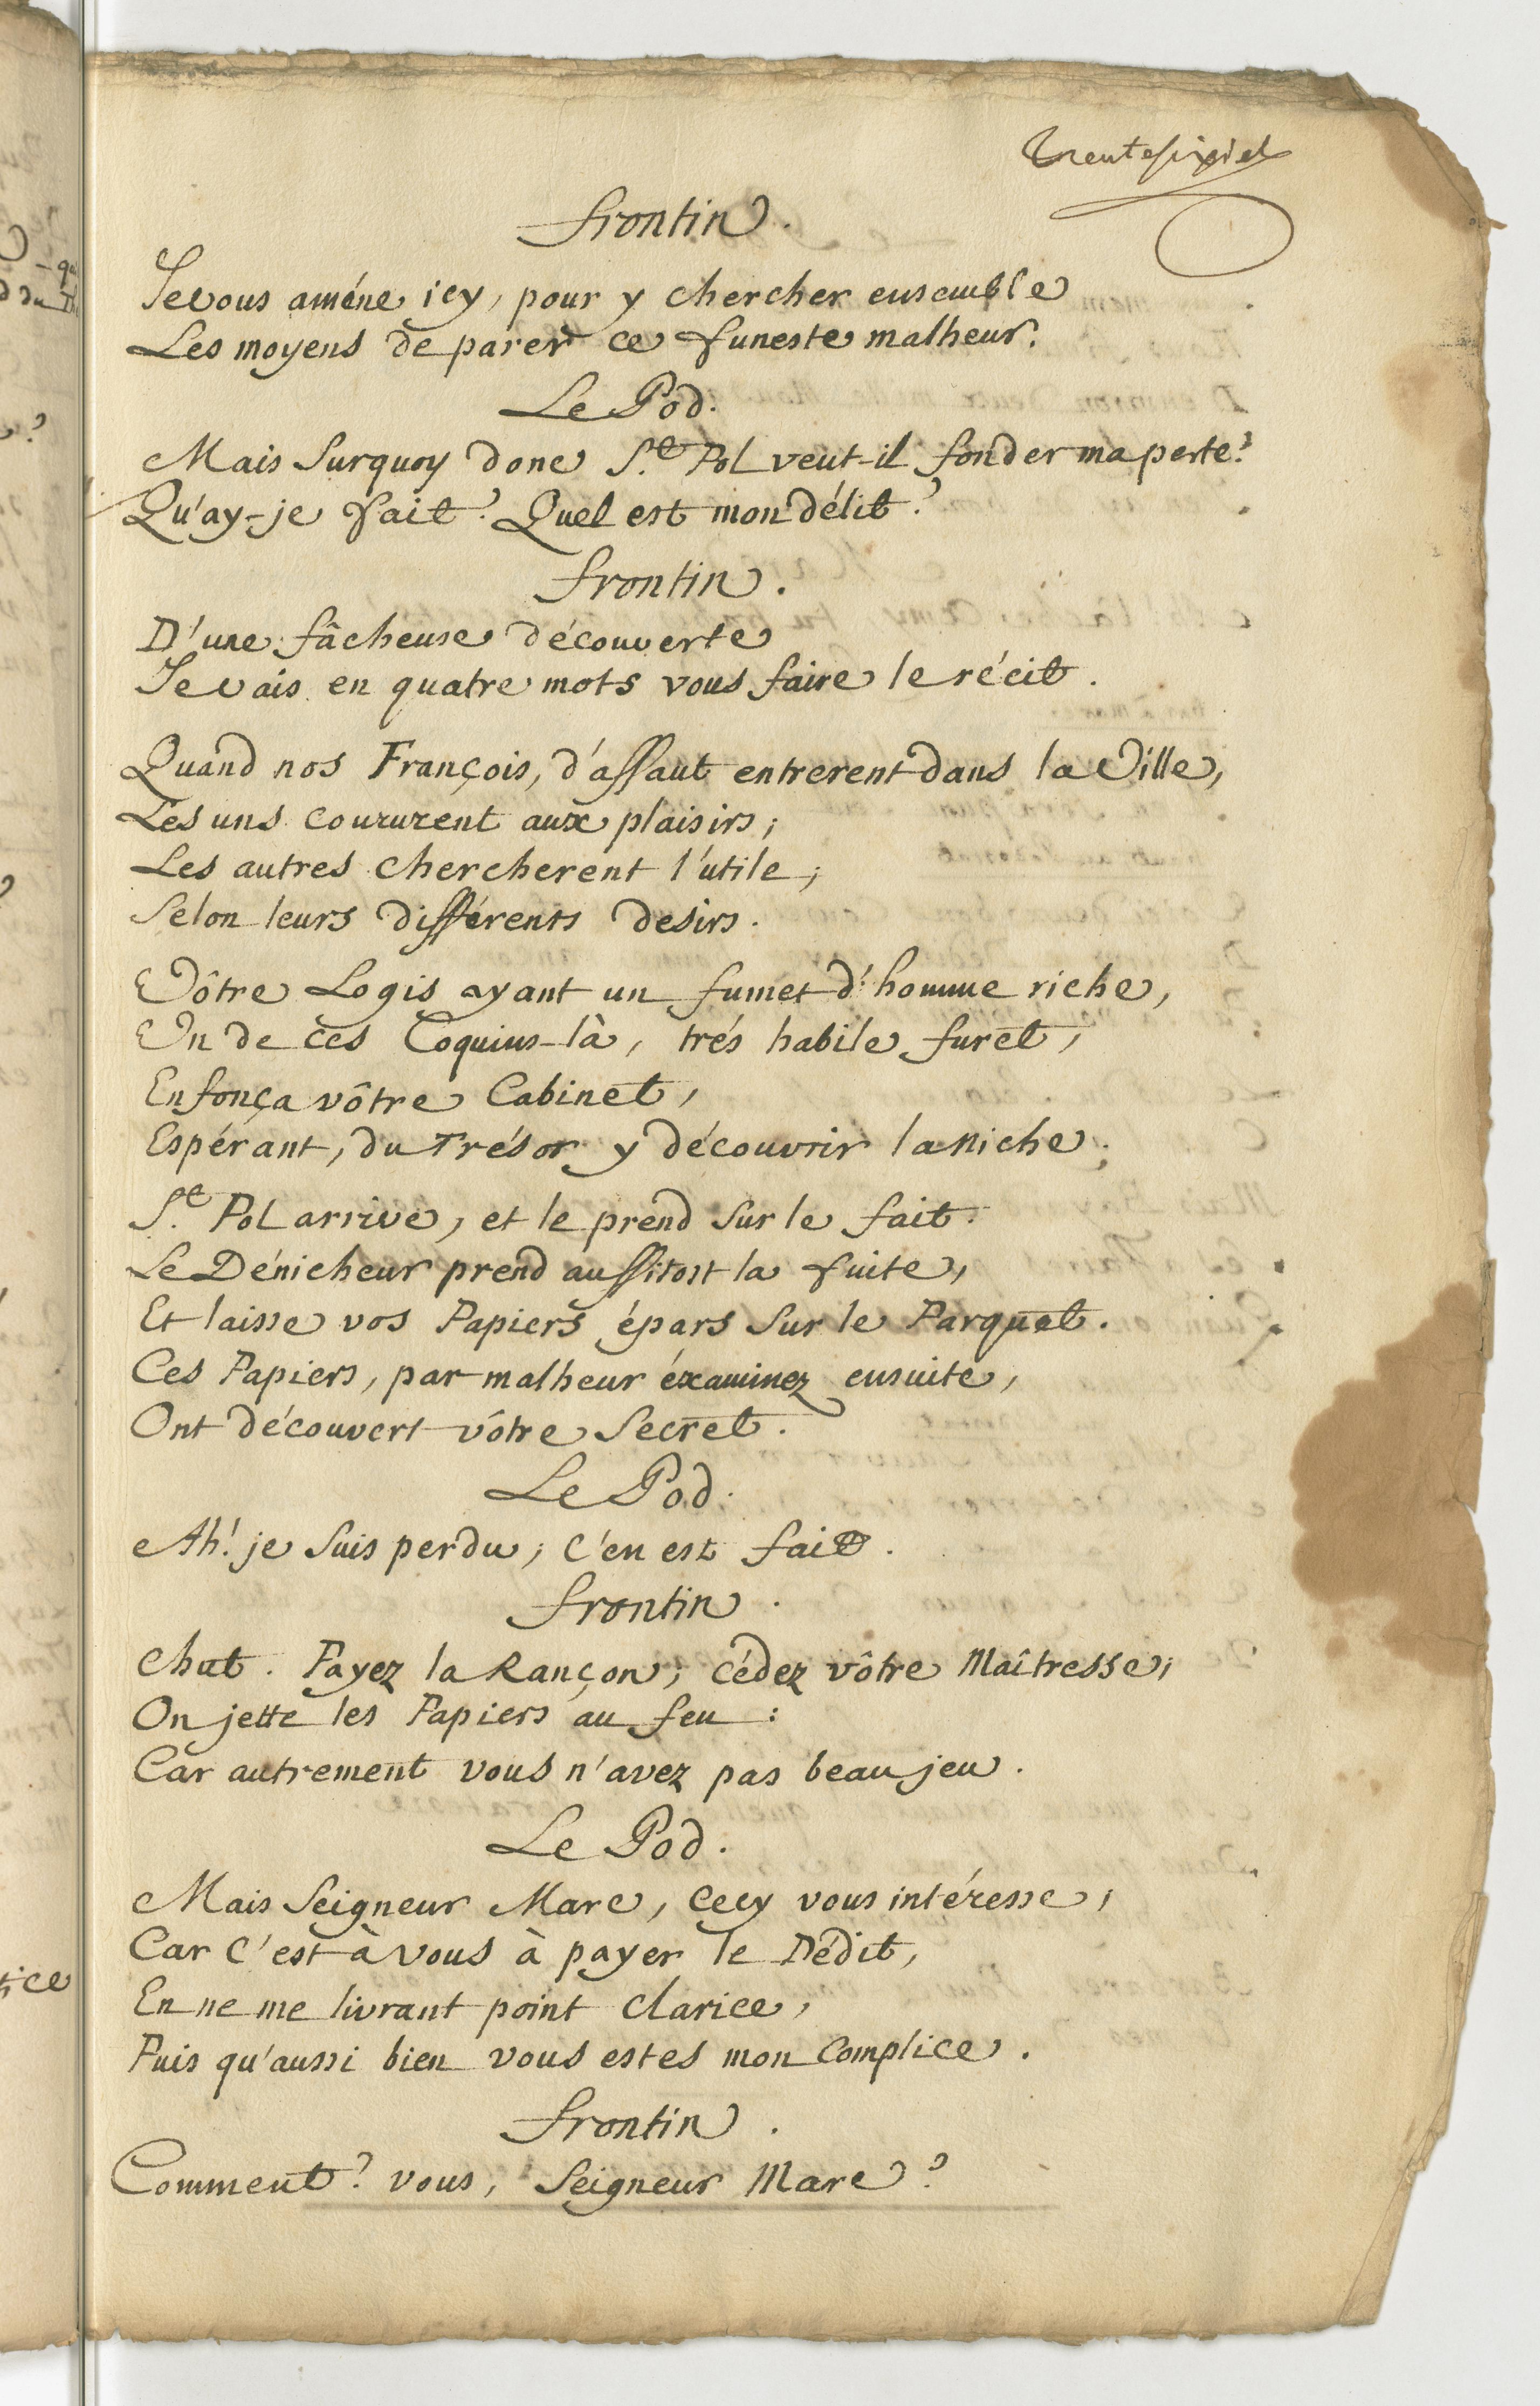 Trente sixiel
frontin.
Je vous améne icy, pour y chercher ensemble
Les moyens de parer ce funeste malheur.
Le Pod.
Mais Surquoy donc S.t Pol veut-il fonder ma perte?
Qu'ay-je fait? Quel est mon délit?
frontin.
D'une fâcheuse découverte
Je vais en quatre mots vous faire le récit.
Quand nos François, d'assaut entrerent dans la Ville,
Les uns coururent aux plaisirs;
Les autres chercherent l'utile;
Selon leurs différents desirs.
Vôtre Logis ayant un fumet d'homme riche,
Un de ces Coquins-là, trés habile furet,
Enfonça vôtre Cabinet,
Espérant, du Trésor y découvrir la niche.
S.t Pol arrive, et le prend Sur le fait.
Le Dénicheur prend aussitost la fuite,
Et laisse vos Papiers épars Sur le Parquet.
Ces Papiers, par malheur éxaminez ensuite,
Ont découvert vôtre Secret.
Le Pod.
Ah! je Suis perdu; C'en est fait.
frontin.
Chut. Payez la Rançon; cédez vôtre Maîtresse;
On jette les Papiers au feu:
Car autrement vous n'avez pas beau jeu.
Le Pod.
Mais Seigneur Marc, Cecy vous intéresse;
Car C'est à vous à payer le Dédit,
En ne me livrant point Clarice,
Puis qu'aussi bien vous estes mon Complice.
frontin.
Comment? vous, Seigneur Marc?